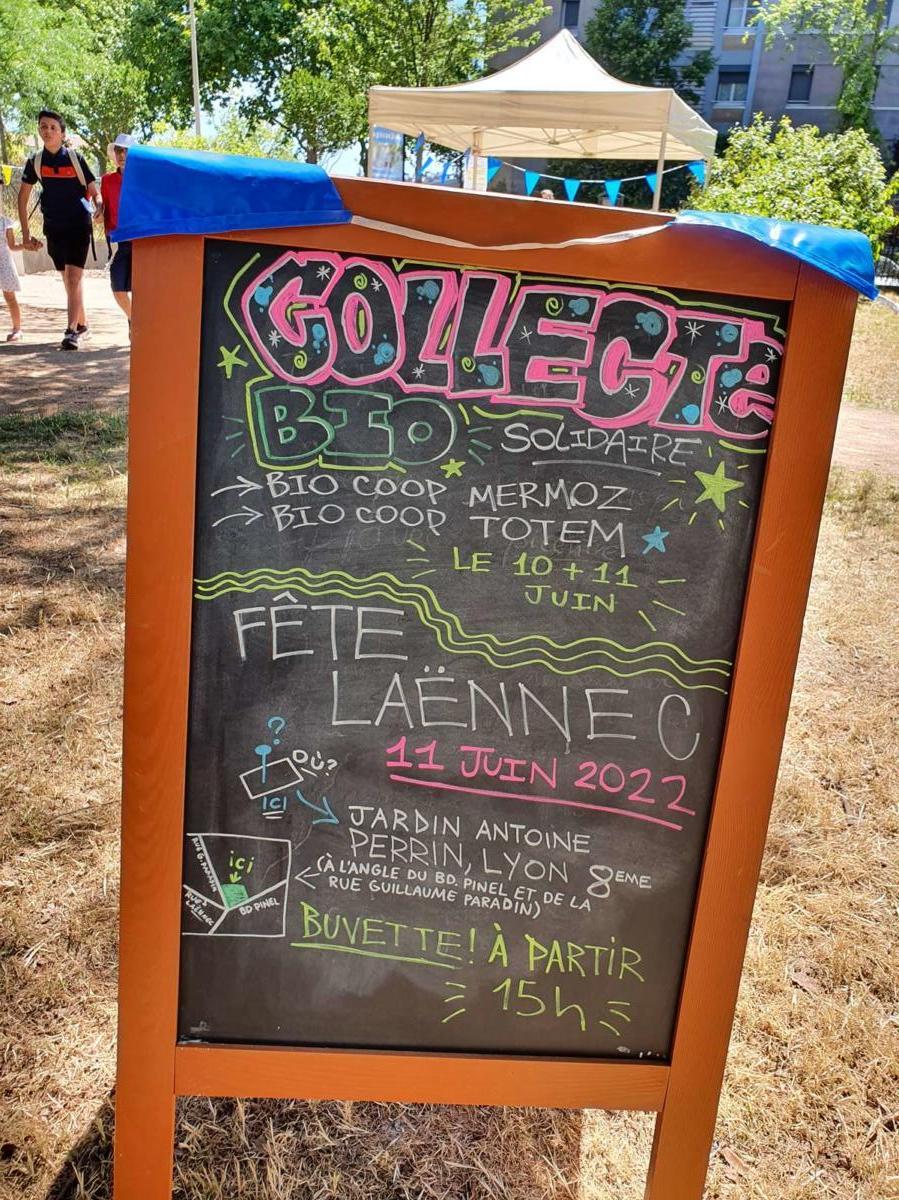 COLLECTe
BIO SOLIDAIRE
→ BIO COOP MERMOZ
→ BIO COOP TOTEM
LE 10 + 11
JUIN
FÊTE
LAËNNEC
11 JUIN 2022
?
OÙ?
ICI
JARDIN ANTOINE
PERRIN, LYON 8EME
(À L'ANGLE DU BD. PINEL ET DE LA
RUE GUILLAUME PARADIN)
RUE G. PARADIN
ici
BD PINEL
LAËNNEC
BUVETTE! À PARTIR
15h